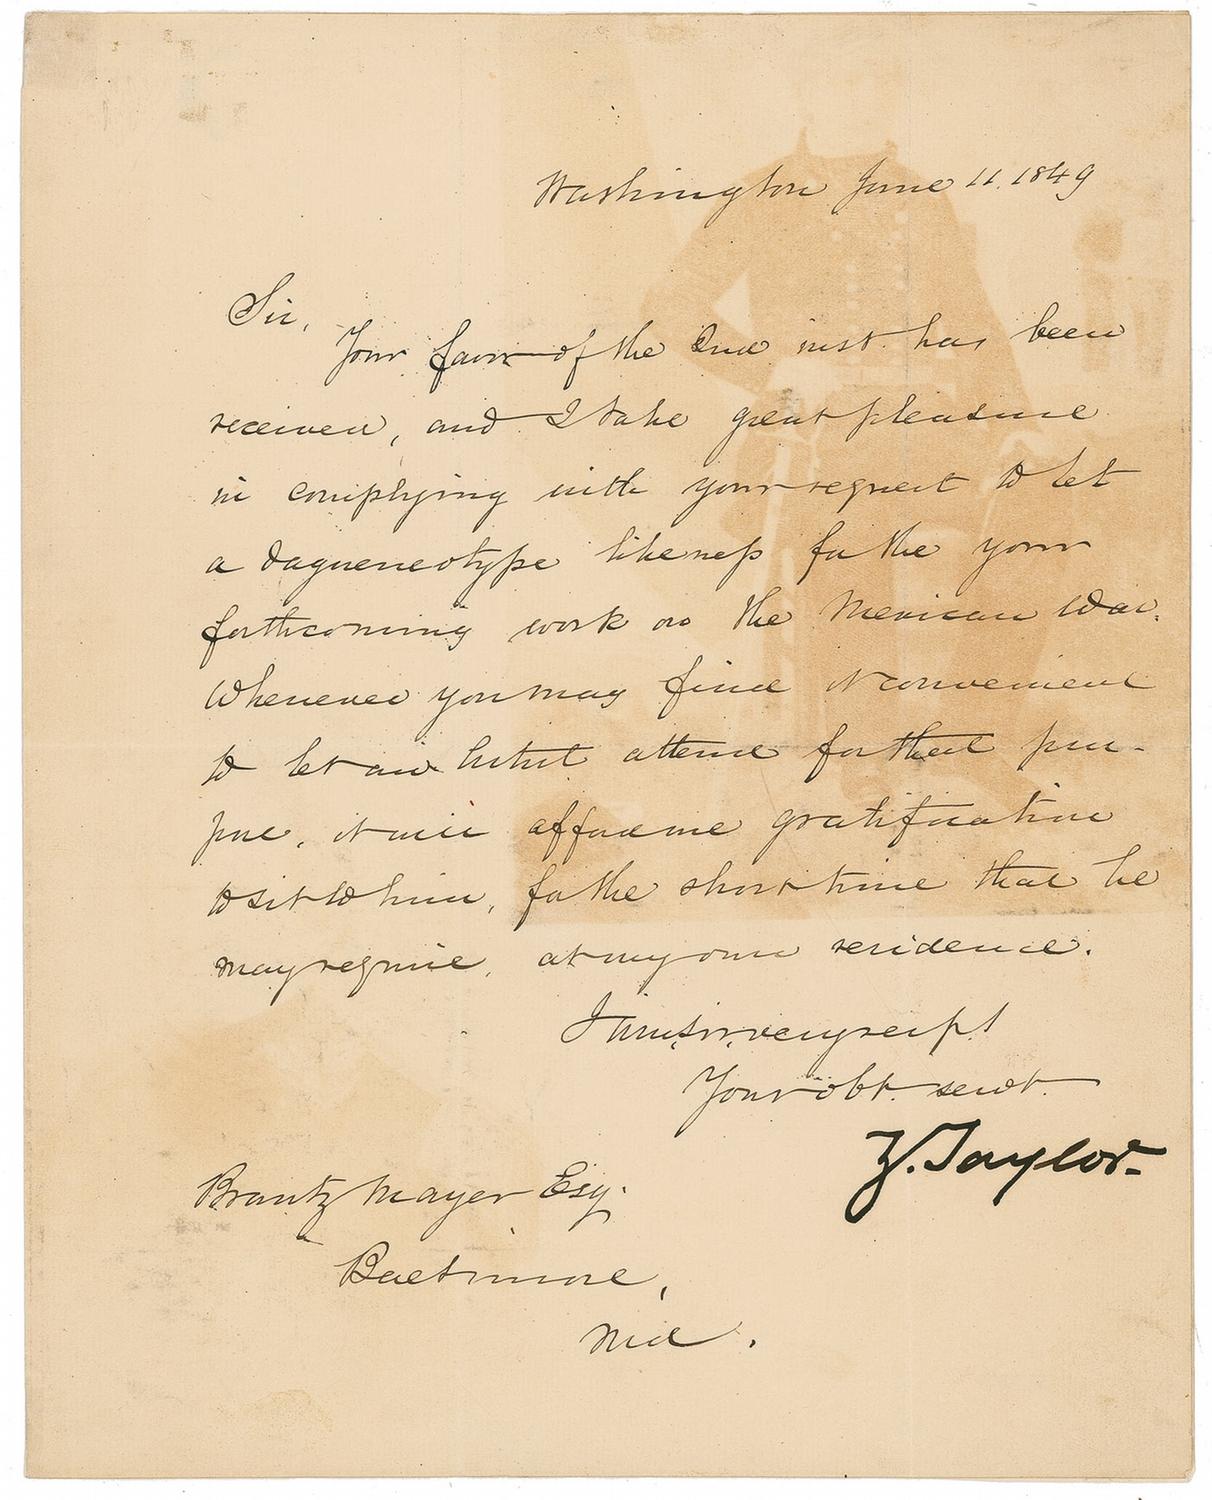 Washington June 11. 1849
Sir,
Your favor of the 2nd inst. has been
received, and I take great pleasure
in complying with your request to let
a daguereotype likeness for the your
forthcoming work on the Mexican War.
Whenever you may find it convenient
to let an Artist attend for that pur-
pose, it will afford me gratification
to sit to him, for the short time that he
may require, at my own residence.
I am, Sir, very respt
Your obt. servt.
Z. Taylor.
Brantz Mayer Esq.
Baltimore,
Md.